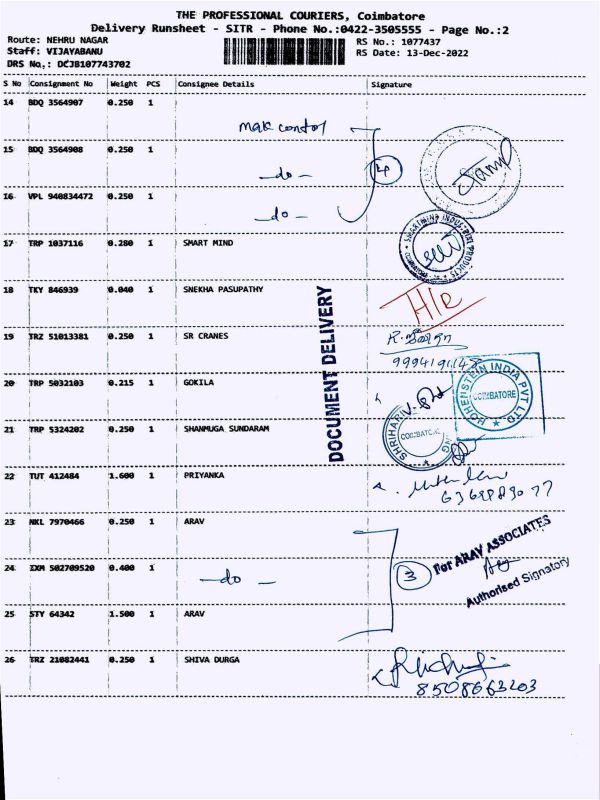 THE PROFESSIONAL COURIERS, Coimbatore
Delivery Runsheet - SITR - Phone No.:0422-3505555 - Page No.:2
Route: NEHRU NAGAR
Staff: VIJAYABANU
DRS No.: DCJB107743702
RS No.: 1077437
RS Date: 13-Dec-2022
S No Consignment No Weight PCS Consignee Details Signature
14 BDQ 3564907 0.250 1
mak control
15 BDQ 3564908 0.250 1
-do-
4
16 VPL 940834472 0.250 1
-do-
17 TRP 1037116 0.280 1 SMART MIND
SMARTMIND INDUSTRIAL PRODUCTS
18 TKY 846939 0.040 1 SNEKHA PASUPATHY
H/R
DOCUMENT DELIVERY
19 TRZ 51013381 0.250 1 SR CRANES
20 TRP 5032103 0.215 1 GOKILA
HOHENSTEIN INDIA PVT LTD.
COIMBATORE
21 TRP 5324202 0.250 1 SHANMUGA SUNDARAM
22 TUT 412484 1.600 1 PRIYANKA
23 NKL 7970466 0.250 1 ARAV
24 IXM 502709520 0.400 1
-do-
3
For ARAV ASSOCIATES
Authorised Signatory
25 STY 64342 1.500 1 ARAV
26 TRZ 21082441 0.250 1 SHIVA DURGA
8508663203